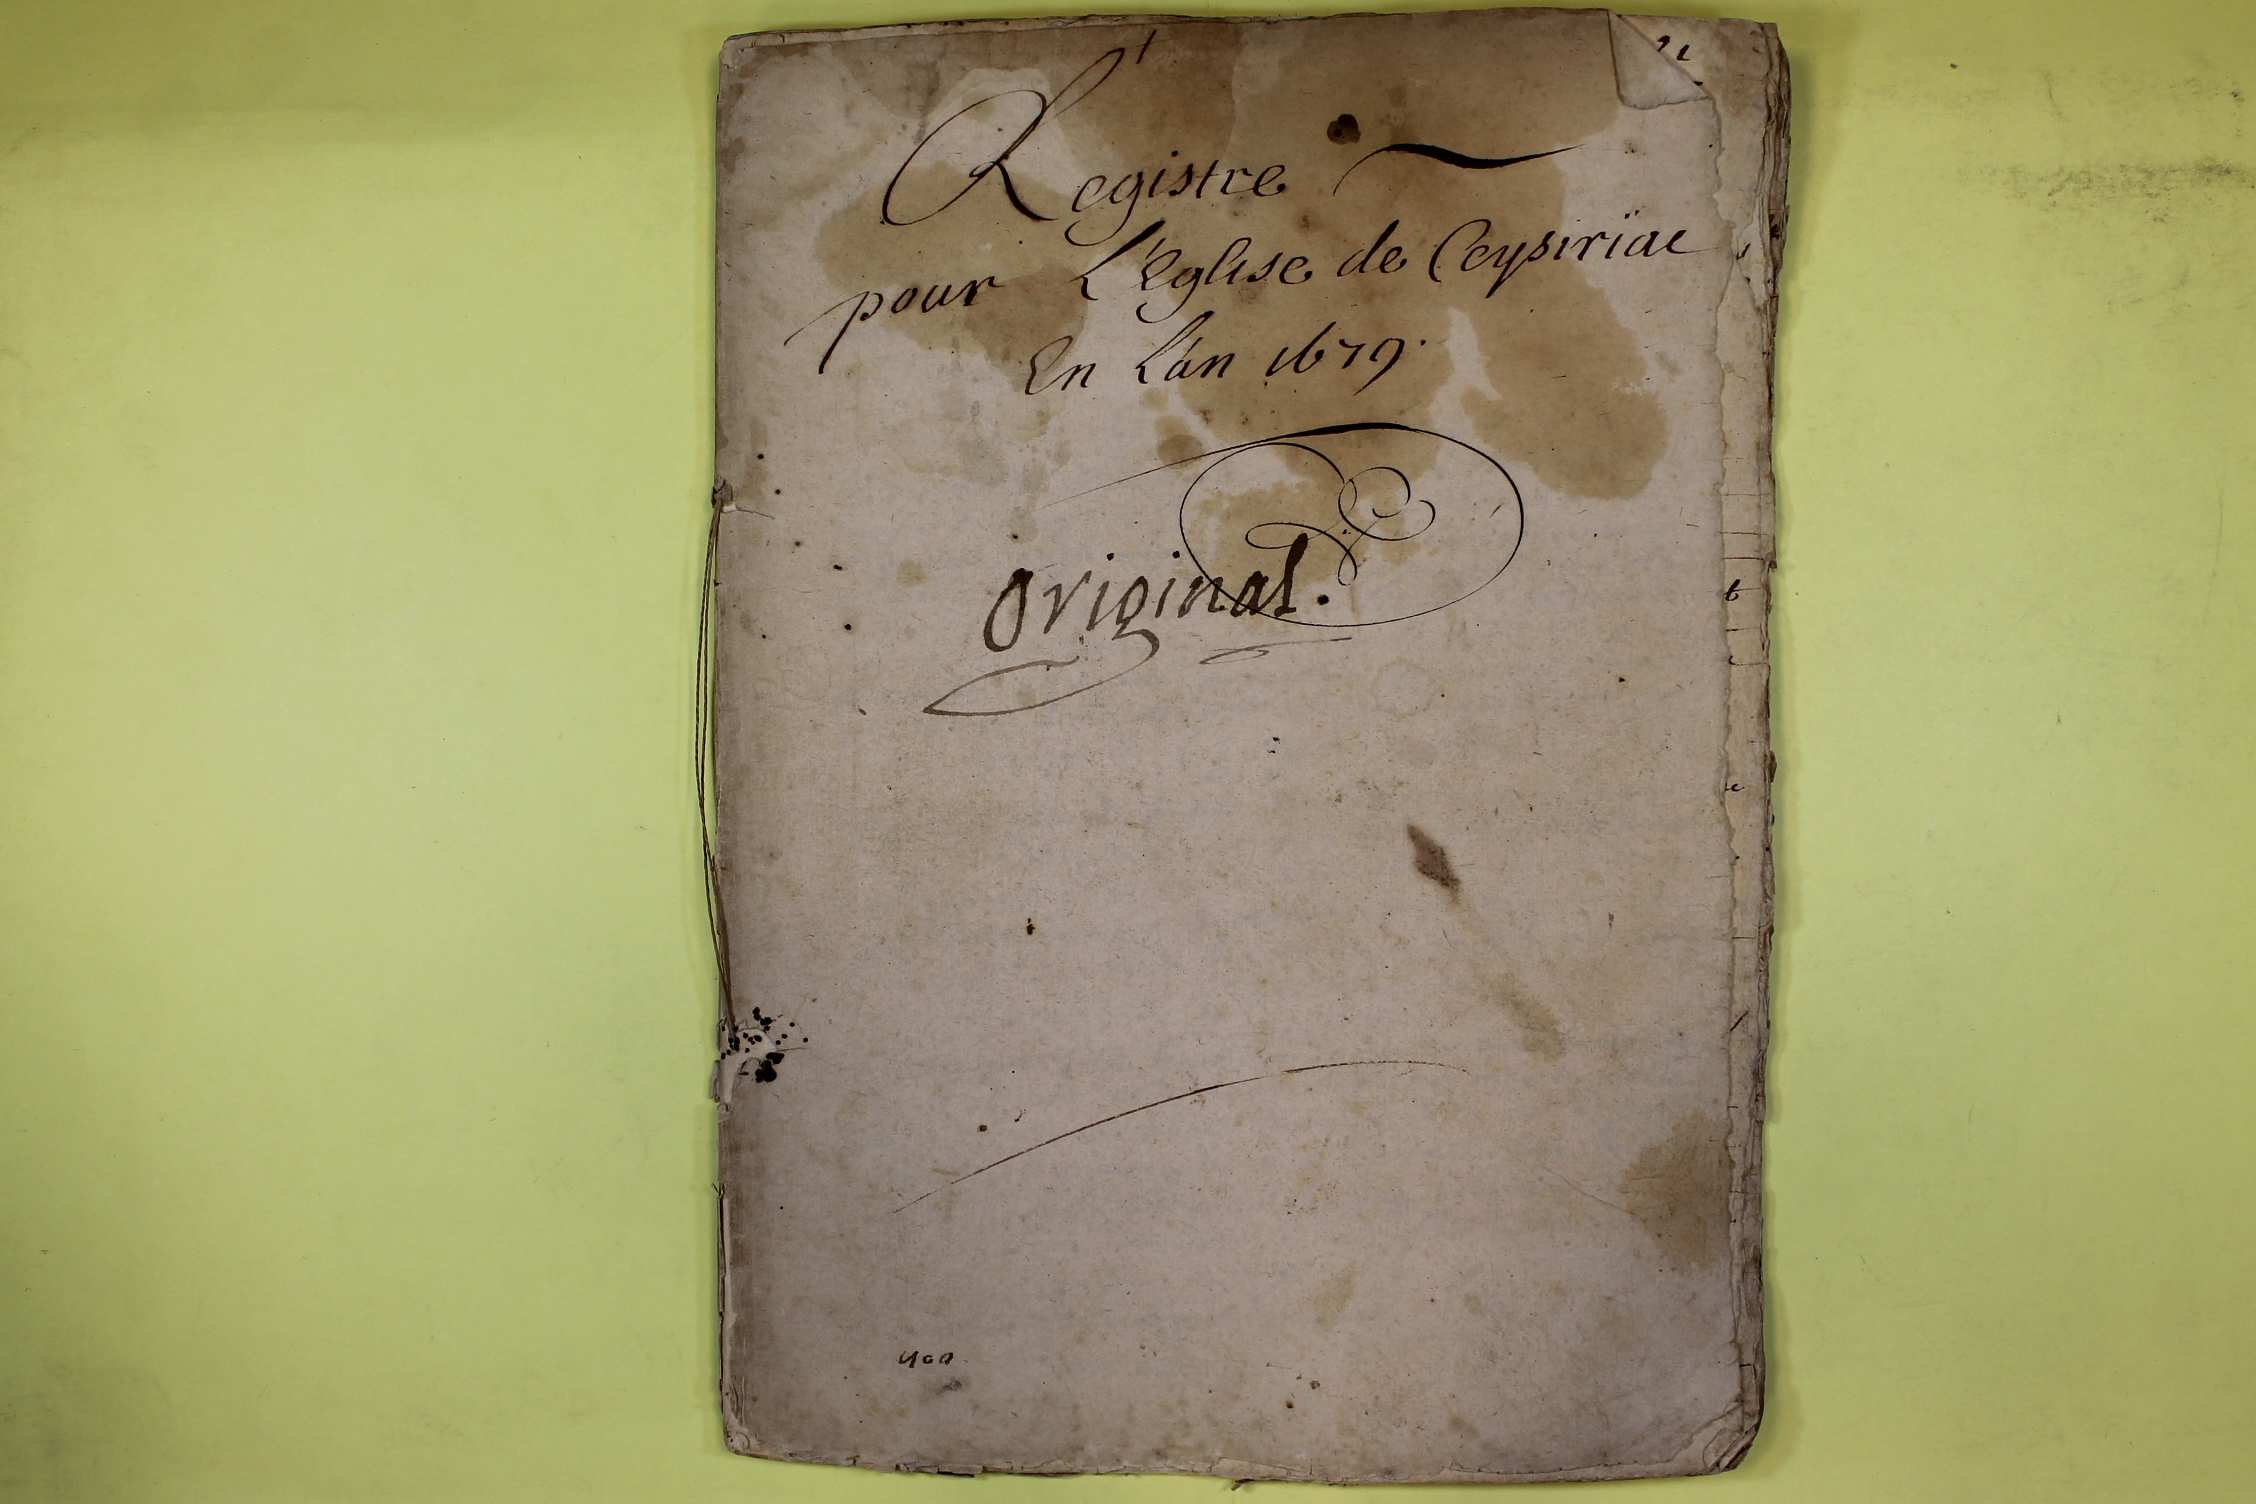 Registre
pour L'Eglise de Ceysiriac
En L'an 1679.
original.
400